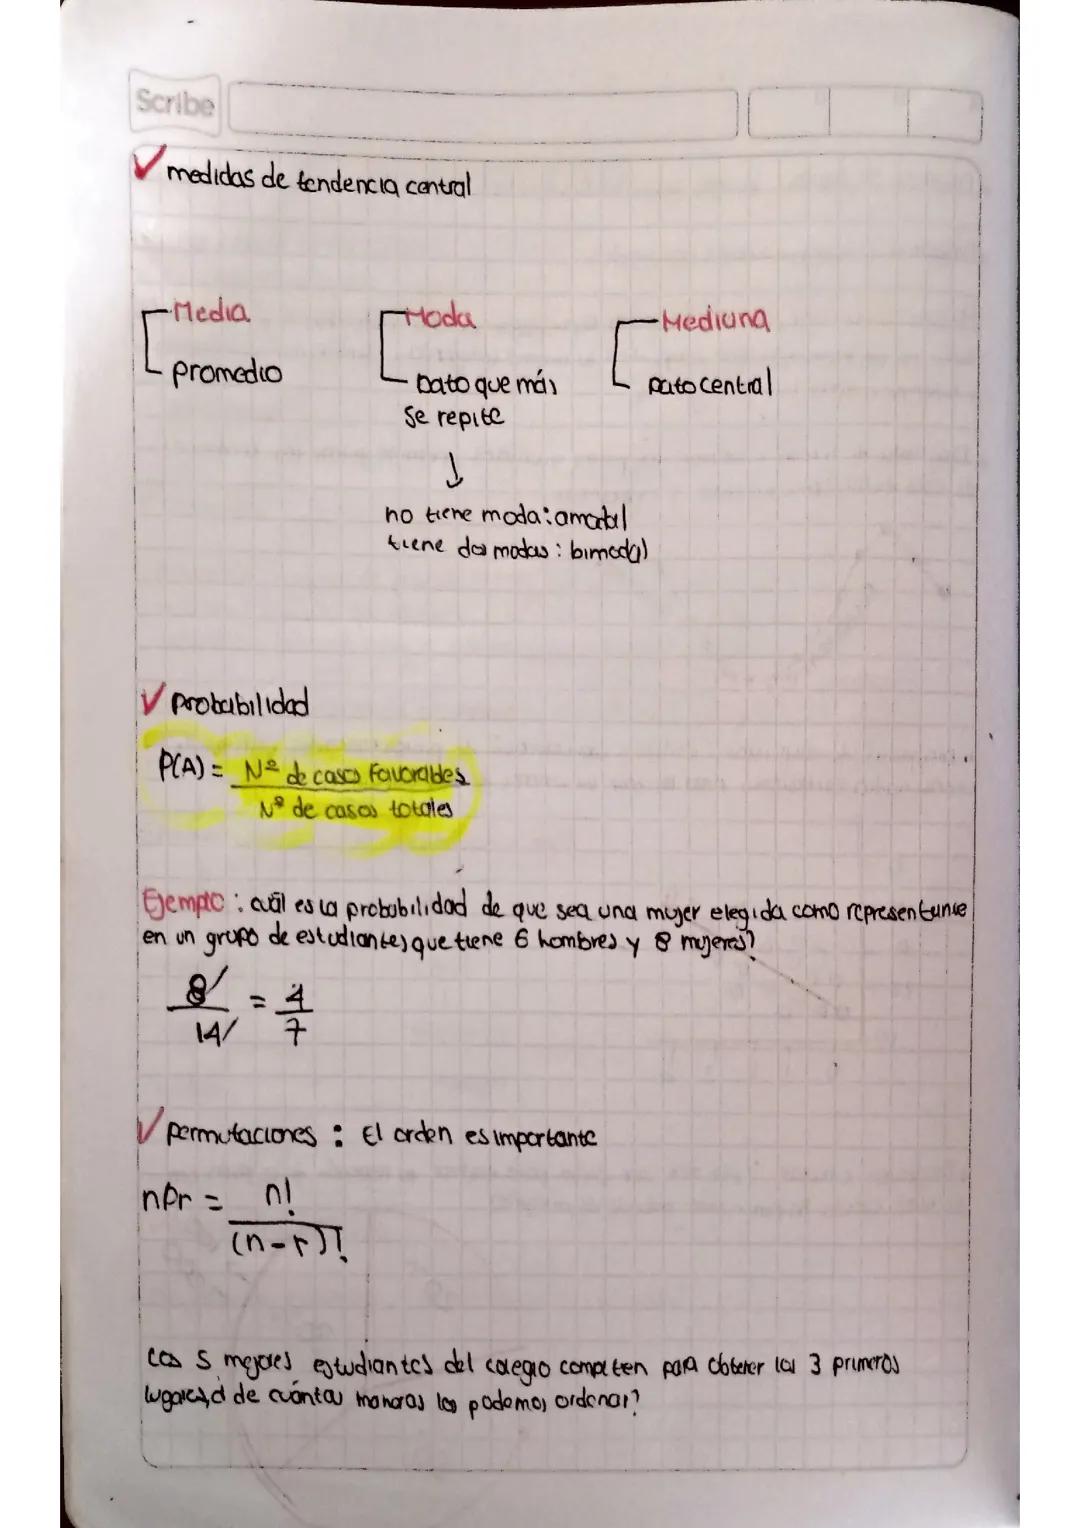 Scribe
medidas de tendencia central
Media Moda Mediana
promedio Dato que más Dato central
se repite
↓
no tiene moda: amodal
tiene dos modas: bimodal
Probabilidad
P(A) = Nº de casos favorables
Nº de casos totales
Ejemplo: cuál es la probabilidad de que sea una mujer elegida como representante
en un grupo de estudiantes que tiene 6 hombres y 8 mujeres?
8/14 = 4/7
Permutaciones: El orden es importante
nPr = n!
(n-r)!
Los 5 mejores estudiantes del colegio compiten para obtener los 3 primeros
lugares, ¿ de cuántas maneras los podemos ordenar?